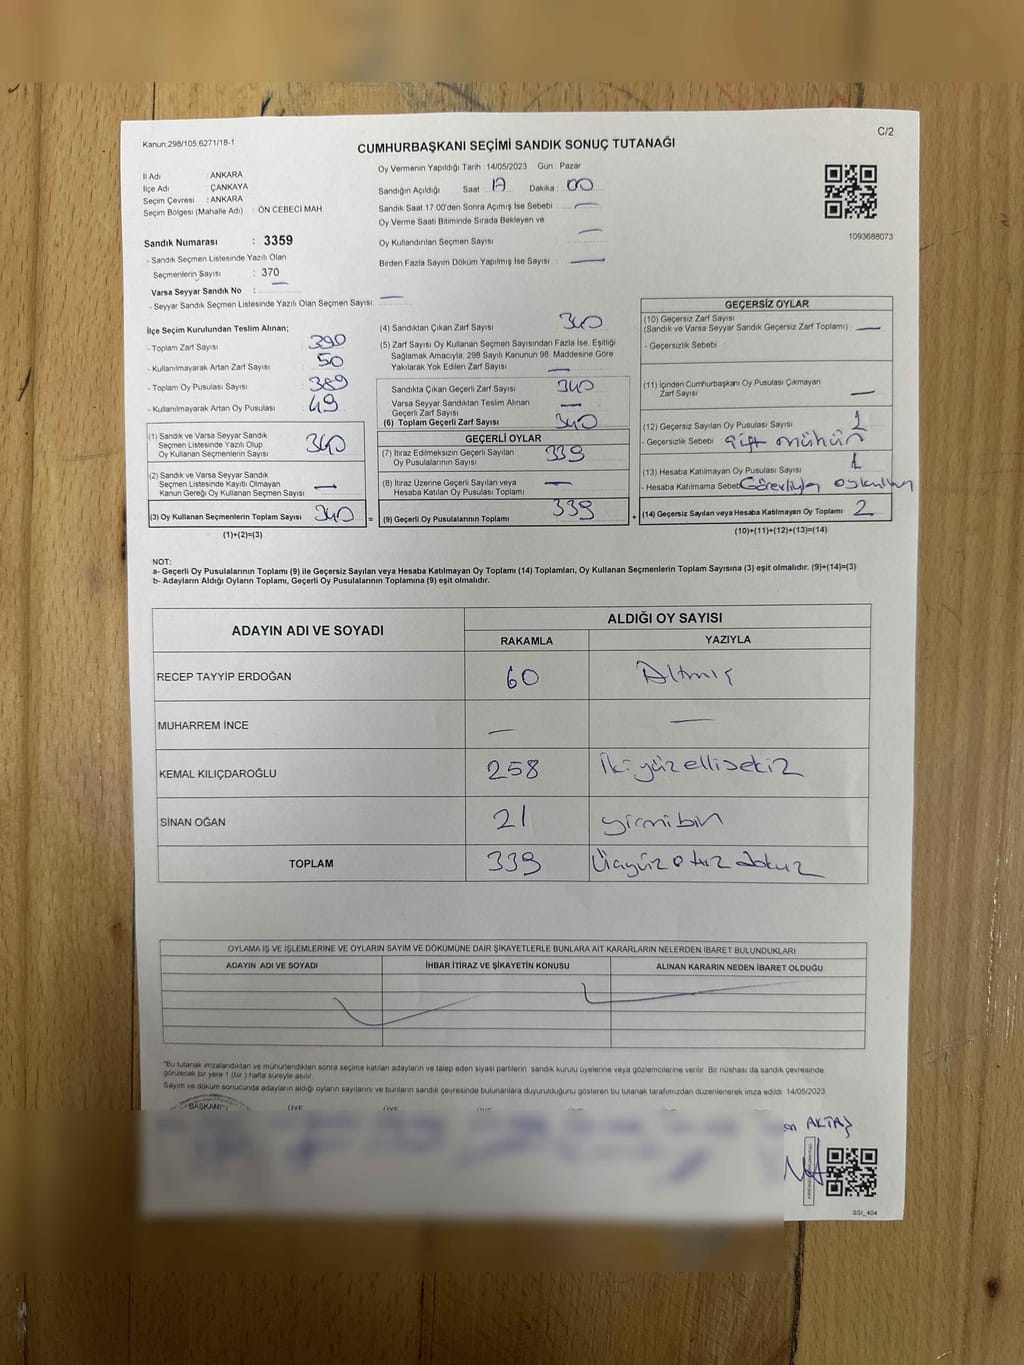 Kanun;298/105;6271/18-1
C/2
CUMHURBAŞKANI SEÇİMİ SANDIK SONUÇ TUTANAĞI
İl Adı : ANKARA
İlçe Adı : ÇANKAYA
Seçim Çevresi : ANKARA
Seçim Bölgesi (Mahalle Adı) : ÖN CEBECİ MAH.
Sandık Numarası : 3359
- Sandık Seçmen Listesinde Yazılı Olan
Seçmenlerin Sayısı : 370
Varsa Seyyar Sandık No : —
- Seyyar Sandık Seçmen Listesinde Yazılı Olan Seçmen Sayısı: —
Oy Vermenin Yapıldığı Tarih : 14/05/2023 Gün : Pazar
Sandığın Açıldığı Saat : 17 Dakika : 00
Sandık Saat 17:00'den Sonra Açımış İse Sebebi : —
Oy Verme Saati Bitiminde Sırada Bekleyen ve
Oy Kullandırılan Seçmen Sayısı : —
Birden Fazla Sayım Döküm Yapılmış İse Sayısı : —
1093688073
İlçe Seçim Kurulundan Teslim Alınan;
- Toplam Zarf Sayısı : 390
- Kullanılmayarak Artan Zarf Sayısı : 50
- Toplam Oy Pusulası Sayısı : 389
- Kullanılmayarak Artan Oy Pusulası : 49
(1) Sandık ve Varsa Seyyar Sandık
Seçmen Listesinde Yazılı Olup
Oy Kullanan Seçmenlerin Sayısı 340
(2) Sandık ve Varsa Seyyar Sandık
Seçmen Listesinde Kayıtlı Olmayan
Kanun Gereği Oy Kullanan Seçmen Sayısı —
(3) Oy Kullanan Seçmenlerin Toplam Sayısı 340 =
(1)+(2)=(3)
(4) Sandıktan Çıkan Zarf Sayısı 340
(5) Zarf Sayısı Oy Kullanan Seçmen Sayısından Fazla İse, Eşitliği
Sağlamak Amacıyla, 298 Sayılı Kanunun 98. Maddesine Göre
Yakılarak Yok Edilen Zarf Sayısı : —
Sandıkta Çıkan Geçerli Zarf Sayısı : 340
Varsa Seyyar Sandıktan Teslim Alınan
Geçerli Zarf Sayısı : —
(6) Toplam Geçerli Zarf Sayısı : 340
GEÇERLİ OYLAR
(7) İtiraz Edilmeksizin Geçerli Sayılan
Oy Pusulalarının Sayısı : 339
(8) İtiraz Üzerine Geçerli Sayılan veya
Hesaba Katılan Oy Pusulası Toplamı : —
(9) Geçerli Oy Pusulalarının Toplamı : 339 +
GEÇERSİZ OYLAR
(10) Geçersiz Zarf Sayısı
(Sandık ve Varsa Seyyar Sandık Geçersiz Zarf Toplamı) : —
- Geçersizlik Sebebi :
(11) İçinden Cumhurbaşkanı Oy Pusulası Çıkmayan
Zarf Sayısı : —
(12) Geçersiz Sayılan Oy Pusulası Sayısı : 1
- Geçersizlik Sebebi : Çift mühür
(13) Hesaba Katılmayan Oy Pusulası Sayısı : 1
- Hesaba Katılmama Sebebi
(14) Geçersiz Sayılan veya Hesaba Katılmayan Oy Toplamı : 2
(10)+(11)+(12)+(13)=(14)
NOT:
a- Geçerli Oy Pusulalarının Toplamı (9) ile Geçersiz Sayılan veya Hesaba Katılmayan Oy Toplamı (14) Toplamları, Oy Kullanan Seçmenlerin Toplam Sayısına (3) eşit olmalıdır. (9)+(14)=(3)
b- Adayların Aldığı Oyların Toplamı, Geçerli Oy Pusulalarının Toplamına (9) eşit olmalıdır.
ADAYIN ADI VE SOYADI
ALDIĞI OY SAYISI
RAKAMLA YAZIYLA
RECEP TAYYİP ERDOĞAN 60 Altmış
MUHARREM İNCE — —
KEMAL KILIÇDAROĞLU 258 ikiyüzellisekiz
SİNAN OĞAN 21 yirmibir
TOPLAM 339 Üçyüz otuz dokuz
OYLAMA İŞ VE İŞLEMLERİNE VE OYLARIN SAYIM VE DÖKÜMÜNE DAİR ŞİKAYETLERLE BUNLARA AİT KARARLARIN NELERDEN İBARET BULUNDUKLARI
ADAYIN ADI VE SOYADI İHBAR İTİRAZ VE ŞİKAYETİN KONUSU ALINAN KARARIN NEDEN İBARET OLDUĞU
*Bu tutanak imzalandıktan ve mühürlendikten sonra seçime katılan adayların ve talep eden siyasi partilerin sandık kurulu üyelerine veya gözlemcilerine verilir. Bir nüshası da sandık çevresinde
görülecek bir yere 1 (bir ) hafta süreyle asılır.
Sayım ve döküm sonucunda adayların aldığı oyların sayılarını ve bunların sandık çevresinde bulunanlara duyurulduğunu gösteren bu tutanak tarafımızdan düzenlenerek imza edildi. 14/05/2023
BAŞKAN ÜYE ÜYE ÜYE ÜYE ÜYE
AKTAŞ
SSI_404